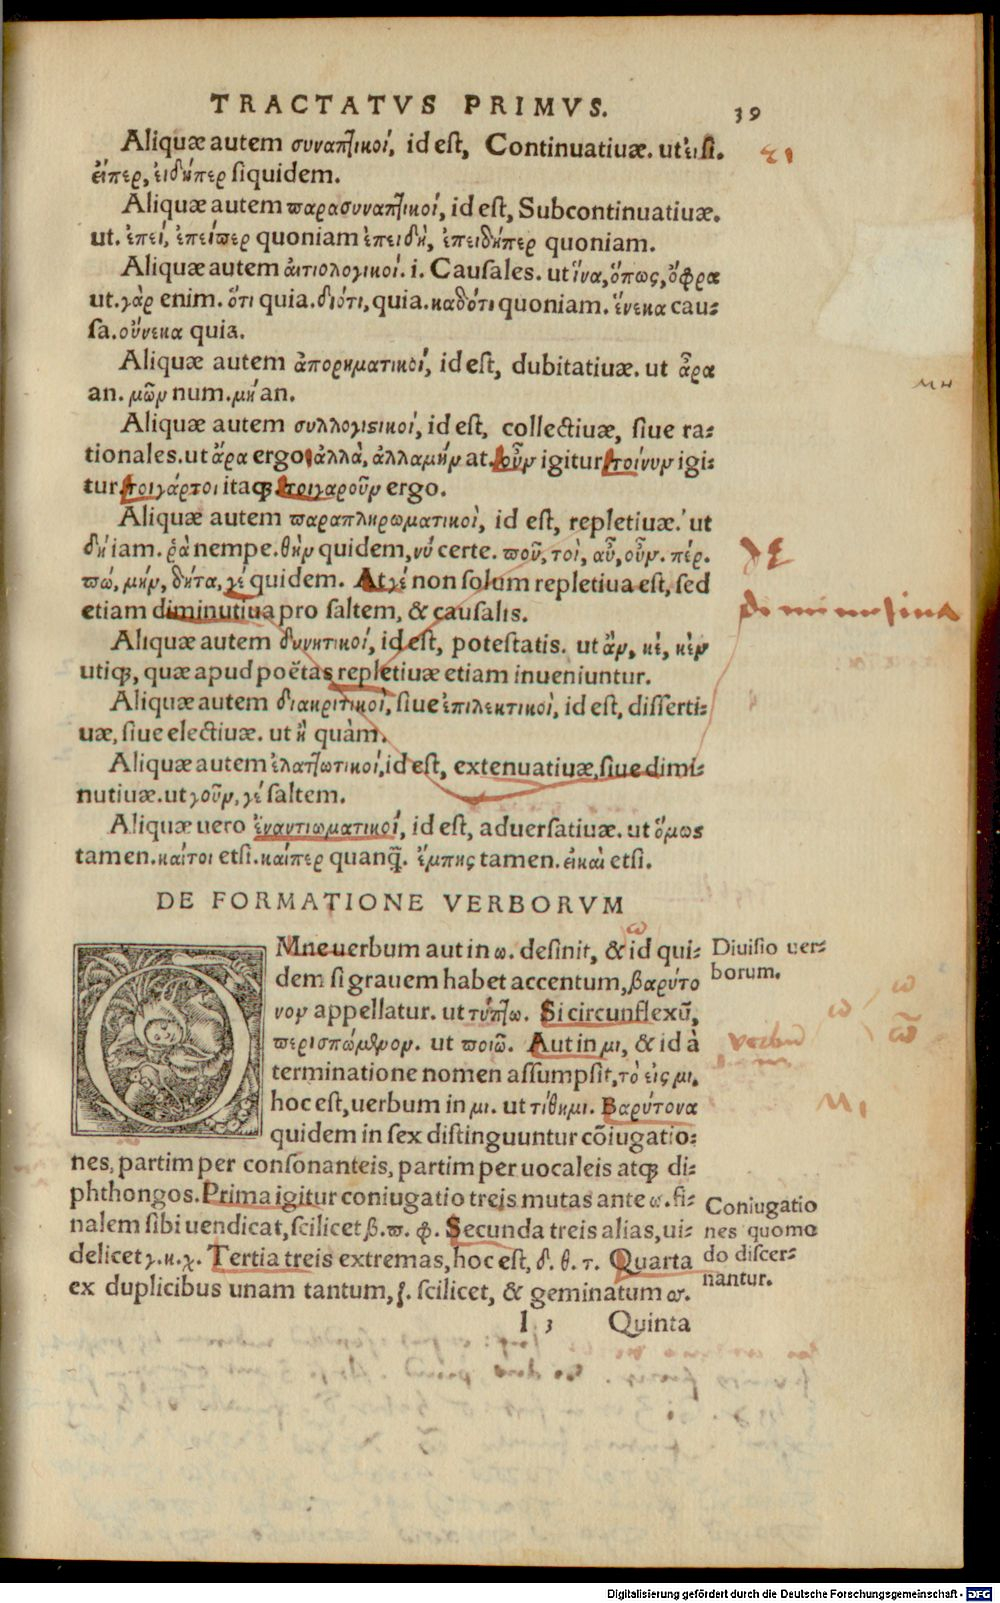 TRACTATVS PRIMVS. 39
Aliquæ autem συναπτικοί, id est, Continuatiuæ. ut εἰ si.
εἴπερ, εἰδήπερ siquidem.
Aliquæ autem παρασυναπτικοί, id est, Subcontinuatiuæ.
ut. ἐπεί, ἐπείπερ quoniam ἐπειδὴ, ἐπειδήπερ quoniam.
Aliquæ autem ἀιτιολογικοί. i. Causales. ut ἵνα, ὅπως, ὄφρα
ut. γὰρ enim. ὅτι quia. διότι, quia. καθότι quoniam. ἕνεκα cau-
sa. οὕνεκα quia.
Aliquæ autem ἀπορηματικοί, id est, dubitatiuæ. ut ἆρα
an. μῶν num. μή an.
Aliquæ autem συλλογιςικοί, id est, collectiuæ, siue ra-
tionales. ut ἄρα ergo ἀλλὰ, ἀλλαμήν at. οὖν igitur τοίνυν igi-
tur τοιγάρτοι itaqꝫ τοιγαροῦν ergo.
Aliquæ autem παραπληρωματικοὶ, id est, repletiuæ. ut
δή iam. ῥὰ nempe. θὴν quidem, νύ certe. ποῦ, τοὶ, αὖ, οὖν. πέρ.
πώ, μήν, δῆτα, γέ quidem. At γέ non solum repletiua est, sed
etiam diminutiua pro saltem, & causalis.
Aliquæ autem δυνητικοί, id est, potestatis. ut ἄν, κὲ, κὲν
utiqꝫ, quæ apud poëtas repletiuæ etiam inueniuntur.
Aliquæ autem διακριτικοὶ, siue ἐπιλεκτικοὶ, id est, disserti-
uæ, siue electiuæ. ut ἢ quàm.
Aliquæ autem ἐλαττωτικοί, id est, extenuatiuæ, siue dimi-
nutiuæ. ut γοῦν, γέ saltem.
Aliquæ uero ἐναντιωματικοί, id est, aduersatiuæ. ut ὅμως
tamen. καίτοι etsi. καίπερ quanq̃. ἔμπης tamen. εἰκαὶ etsi.
DE FORMATIONE VERBORVM
OMne uerbum aut in ω. desinit, & id qui-
dem si grauem habet accentum, βαρύτο
νον appellatur. ut τύπτω. Si circunflexũ,
περισπώμενον. ut ποιῶ. Aut in μι, & id à
terminatione nomen assumpsit, τὸ εἰς μι.
hoc est, uerbum in μι. ut τίθημι. Βαρύτονα
quidem in sex distinguuntur cõiugatio-
nes, partim per consonanteis, partim per uocaleis atqꝫ di-
phthongos. Prima igitur coniugatio treis mutas ante ω. fi-
nalem sibi uendicat, scilicet β. π. φ. Secunda treis alias, ui-
delicet γ. κ. χ. Tertia treis extremas, hoc est, δ. θ. τ. Quarta
ex duplicibus unam tantum, ζ. scilicet, & geminatum σσ.
I 3 Quinta
Diuisio uer-
borum.
Coniugatio
nes quomo
do discer-
nantur.
δε
diminutiua
ω
ω
ω
ῶ
verbũ
μι
Digitalisierung gefördert durch die Deutsche Forschungsgemeinschaft - DFG